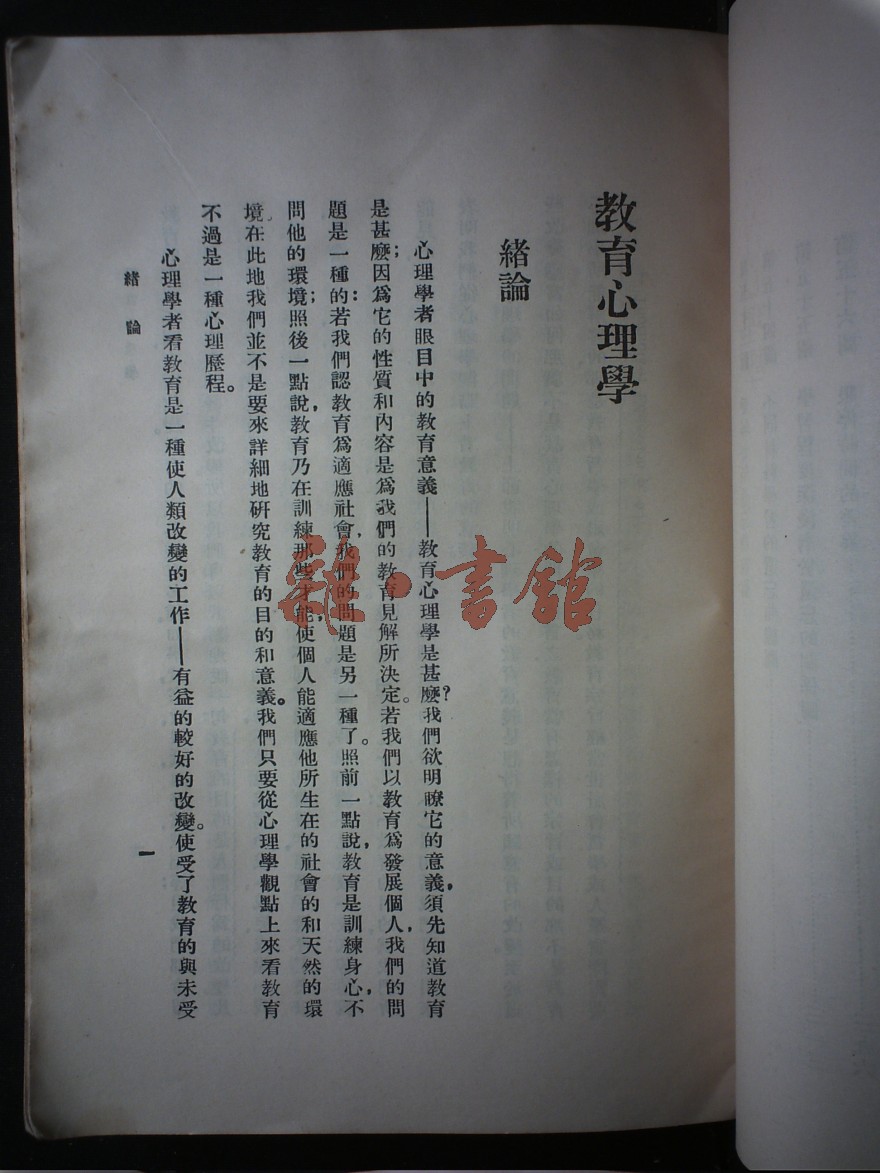 教育心理學
緒論
心理學者眼目中的教育意義——教育心理學是甚麼?我們欲明瞭它的意義,須先知道教育
是甚麼;因爲它的性質和內容是爲我們的教育見解所決定。若我們以教育爲發展個人,我們的問
題是一種的:若我們認教育爲適應社會,我們的問題是另一種了。照前一點說,教育是訓練身心,不
問他的環境;照後一點說,教育乃在訓練那些才能,使個人能適應他所生在的社會的和天然的環
境。在此地我們並不是要來詳細地硏究教育的目的和意義。我們只要從心理學觀點上來看教育
不過是一種心理歷程。
心理學者看教育是一種使人類改變的工作——有益的較好的改變。使受了教育的與未受
緒論
一
雜·書館